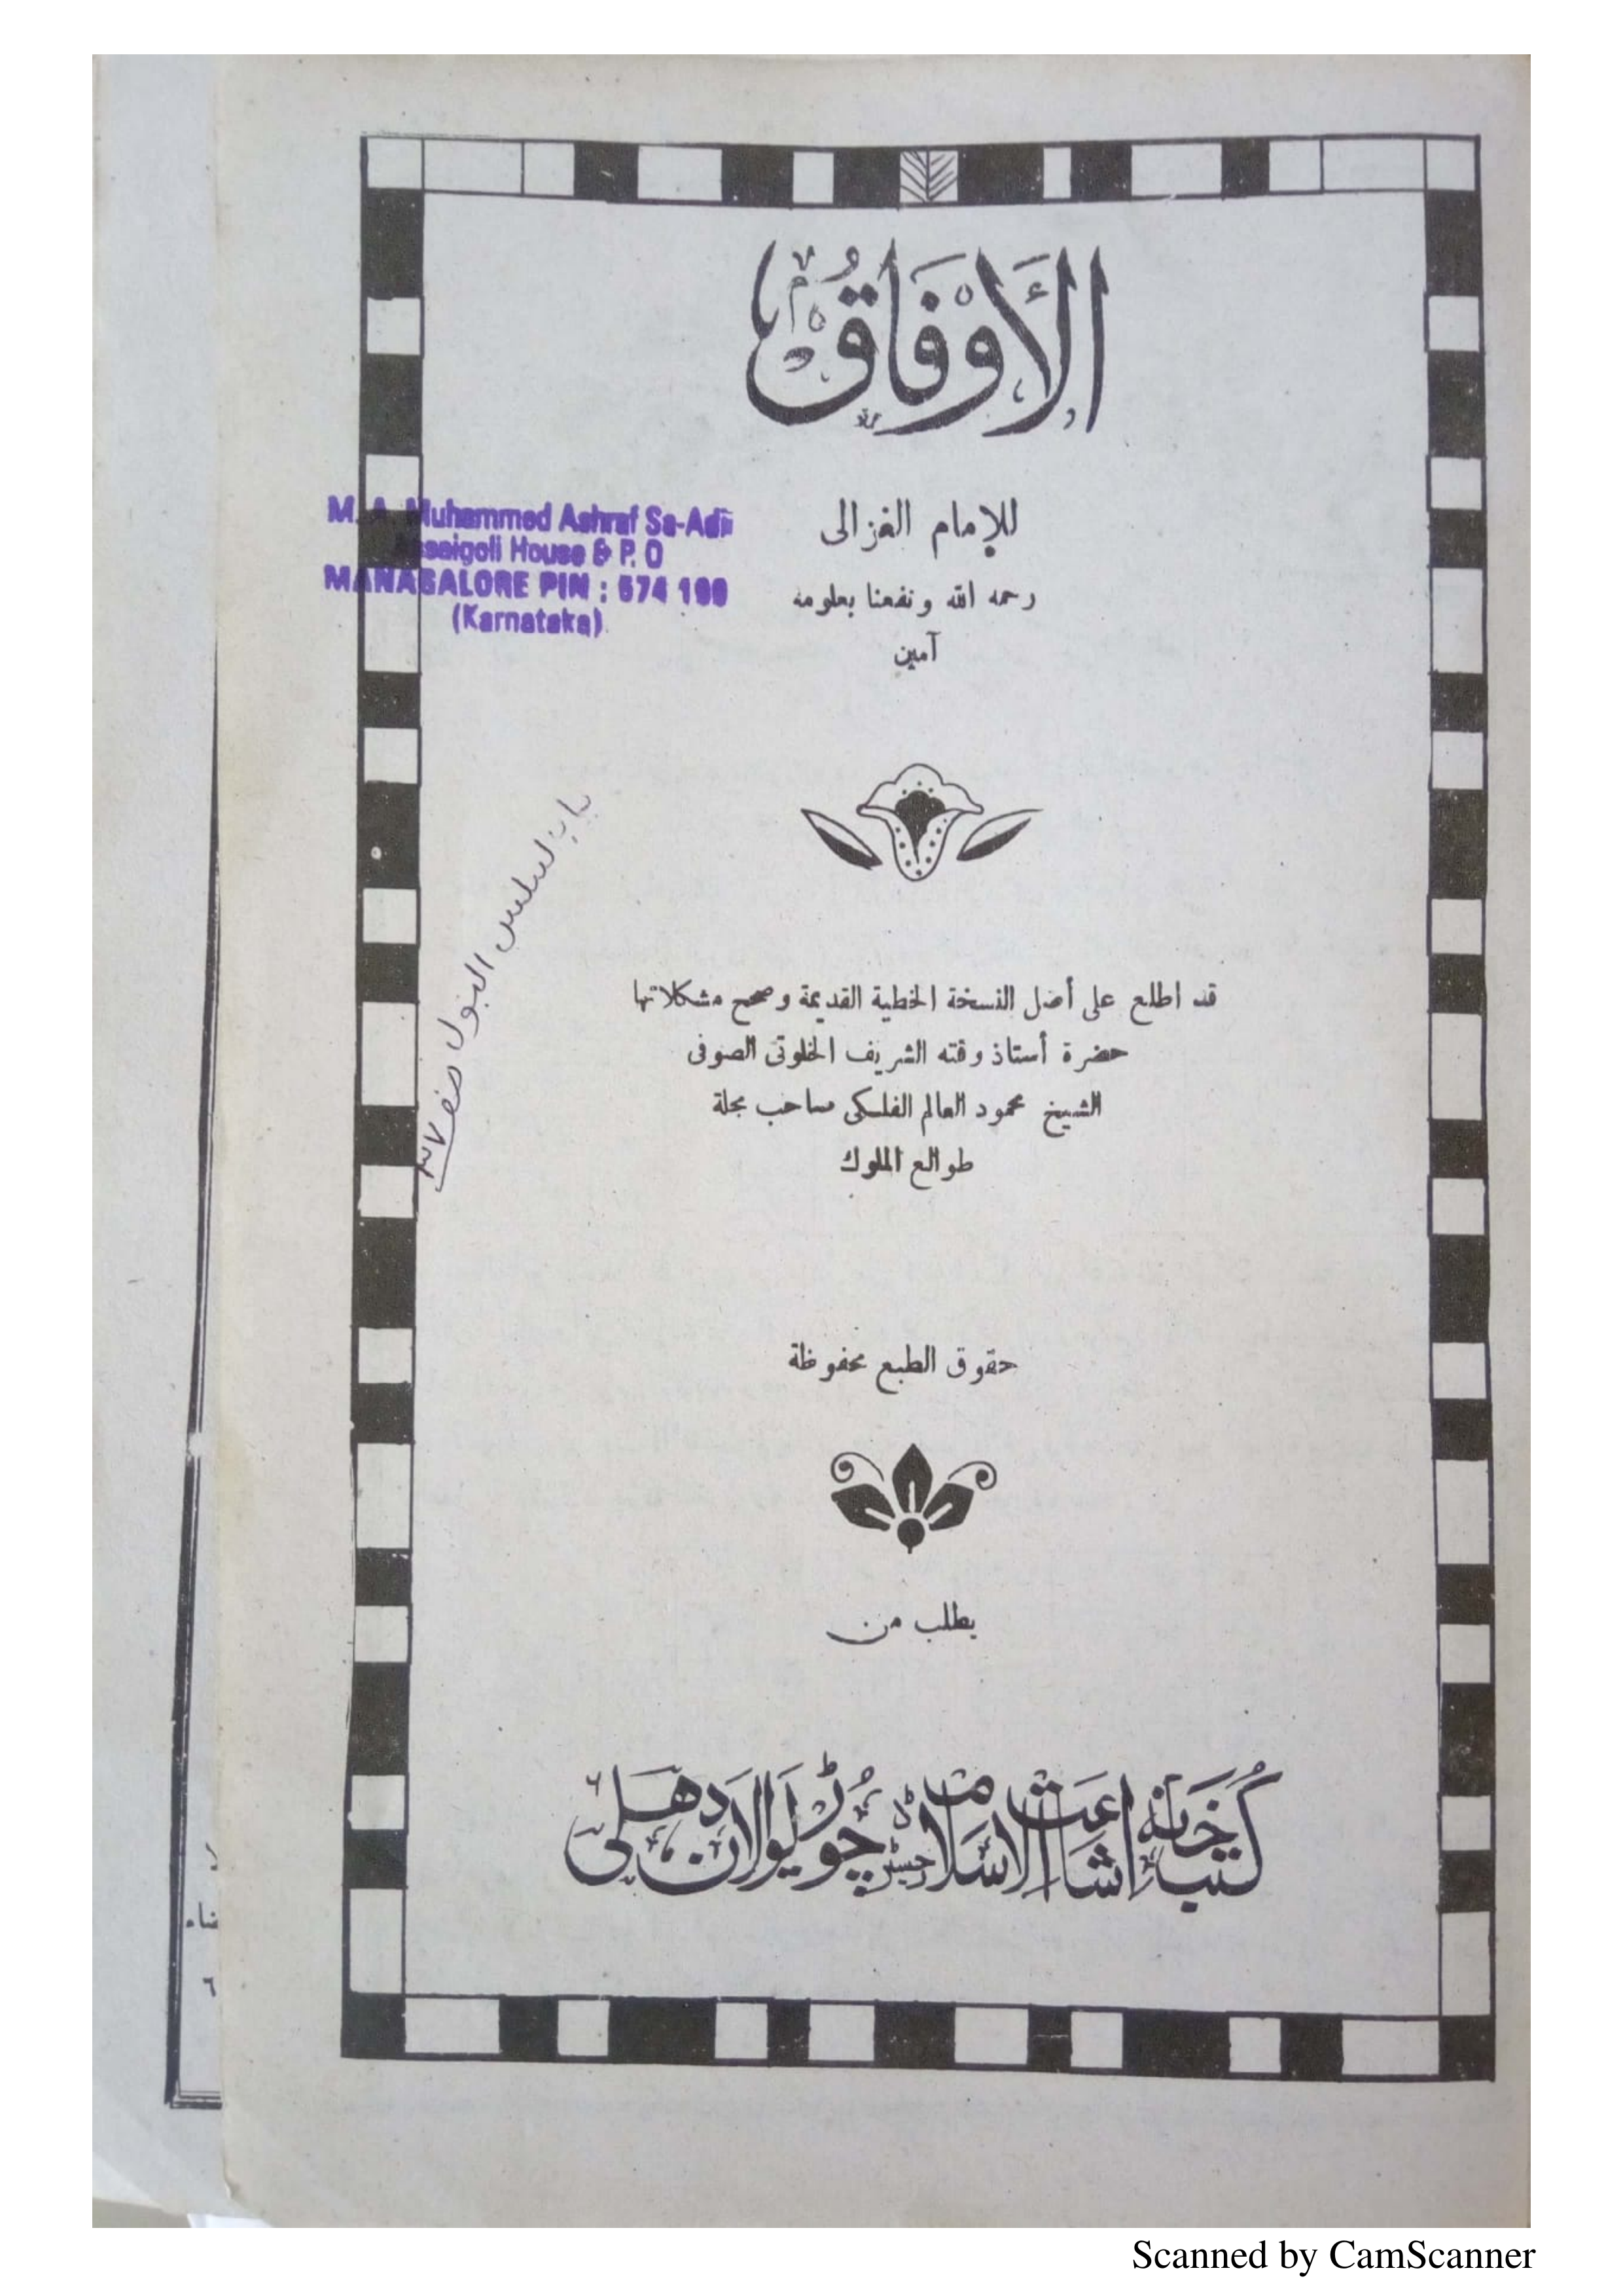 الأَوْفَاقُ
للإمام الغزالى
رحمه الله ونفعنا بعلومه
آمين
M. A. Muhammed Ashraf Sa-Adi
House & P. O
MANAGALORE PIN : 574 199
(Karnataka)
البول
قد اطلع على أصل النسخة الخطية القديمة وصحح مشكلاتها
حضرة أستاذ وقته الشريف الخلوتى الصوفى
الشيخ محمود العالم الفلكى صاحب مجلة
طوالع الملوك
حقوق الطبع محفوظة
يطلب من
كُتب خَانَه اشاعَتُ الاسْلام چُوڑیوَالَان دهلی
Scanned by CamScanner